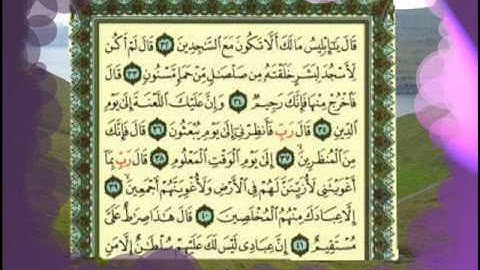 قَالَ يَٰٓإِبْلِيسُ مَا لَكَ أَلَّا تَكُونَ مَعَ ٱلسَّٰجِدِينَ ٣٢ قَالَ لَمْ أَكُن
لِّأَسْجُدَ لِبَشَرٍ خَلَقْتَهُۥ مِن صَلْصَٰلٍ مِّنْ حَمَإٍ مَّسْنُونٍ ٣٣ قَالَ
فَٱخْرُجْ مِنْهَا فَإِنَّكَ رَجِيمٌ ٣٤ وَإِنَّ عَلَيْكَ ٱللَّعْنَةَ إِلَىٰ يَوْمِ
ٱلدِّينِ ٣٥ قَالَ رَبِّ فَأَنظِرْنِىٓ إِلَىٰ يَوْمِ يُبْعَثُونَ ٣٦ قَالَ فَإِنَّكَ
مِنَ ٱلْمُنظَرِينَ ٣٧ إِلَىٰ يَوْمِ ٱلْوَقْتِ ٱلْمَعْلُومِ ٣٨ قَالَ رَبِّ بِمَآ
أَغْوَيْتَنِى لَأُزَيِّنَنَّ لَهُمْ فِى ٱلْأَرْضِ وَلَأُغْوِيَنَّهُمْ أَجْمَعِينَ ٣٩
إِلَّا عِبَادَكَ مِنْهُمُ ٱلْمُخْلَصِينَ ٤٠ قَالَ هَٰذَا صِرَٰطٌ عَلَىَّ
مُسْتَقِيمٌ ٤١ إِنَّ عِبَادِى لَيْسَ لَكَ عَلَيْهِمْ سُلْطَٰنٌ إِلَّا مَنِ